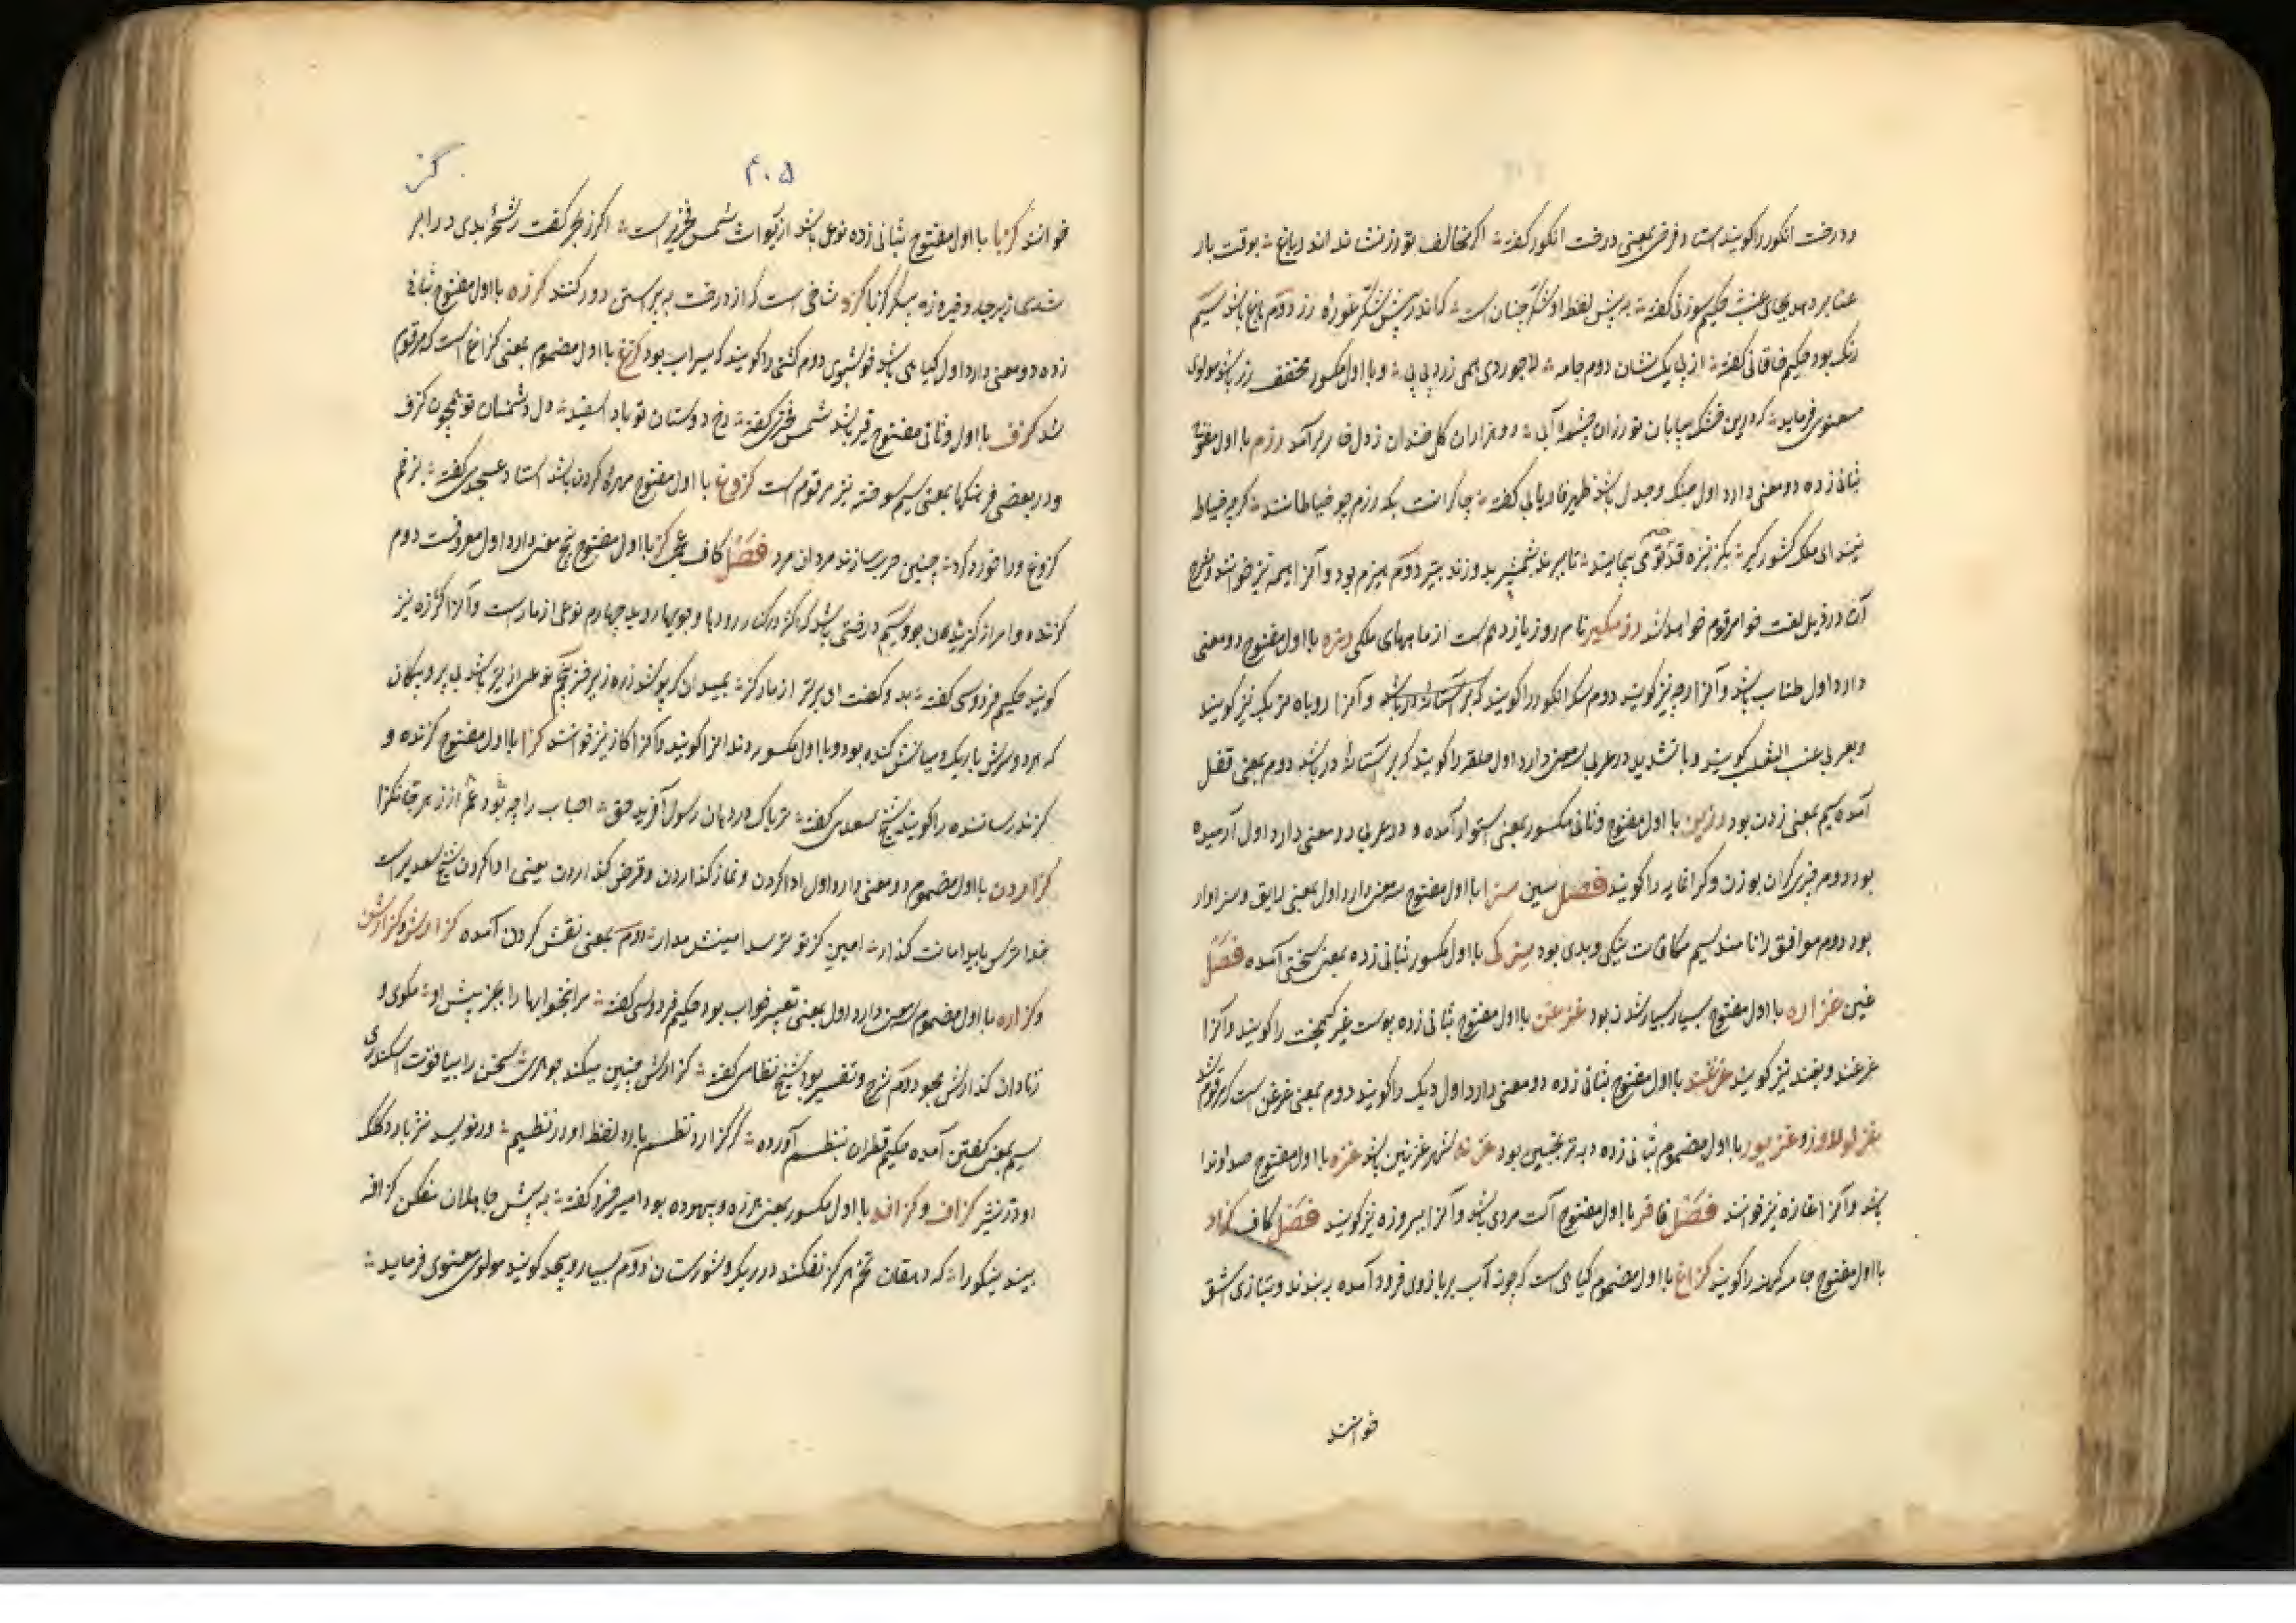 ودرخت انگور را گویند استاد فرخی بمعنی درخت انگور گفته اگر مخالف تو رز نشاند اندر باغ بوقت بار
عنا بر دهد بجای عنب حکیم سوزنی گفته به پیش لفظ او شکر چنان است که اندر پیش شکر غوره رز دوم باغ باشد سیم
رنگ بود حکیم خاقانی گفته از پی یک نشان دوم جامه لاجوردی همی رزد پی پی و با اول مکسور مخفف رز باشد مولوی
معنوی فرماید که درین خشک بیابان تو رزان چشمه آبی دو هزاران گل خندان ز دل خار برآمد رزم با اول مفتوح
بثانی زده دو معنی دارد اول جنگ و جدل باشد ظهیر فاریابی گفته چاکرانت بگه رزم چو خیاطانند گرچه خیاط
نیند ای ملک کشور گیر بگز نیزه قد خصم تو می پیمایند تا ببرند بشمشیر بدوزند بتیر دوم هیزم بود و آنرا هیمه نیز خوانند و شرح
آن در ذیل لغت خوا مرقوم خواهد شد نام روز یازدهم است از ماههای ملکی رزه با اول مفتوح دو معنی
دارد اول طناب باشد و آنرا رجه نیز گویند دوم سک انگور را گویند و آنرا روباه تربک نیز گویند
و بعربی عنب الثعلب گویند و با تشدید در عربی سه معنی دارد اول حلقه را گویند که بر آستانه در باشد دوم بمعنی قفل
آمده سیم بمعنی زدن بود رزین با اول مفتوح و ثانی مکسور بمعنی استوار آمده و در عربی دو معنی دارد اول آرمیده
بود دوم چیزی گران بوزن و گرانمایه را گویند فصل سین سزا با اول مفتوح سه معنی دارد اول بمعنی لایق و سزاوار
بود دوم موافق را نامند سیم مکافات نیکی و بدی بود با اول مکسور بثانی زده بمعنی سختی آمده فصل
غین غزاره با اول مفتوح بسیار بسیار شدن بود غزغن با اول مفتوح بثانی زده پوست غیر کیمخت را گویند و آنرا
غرغند و بغند نیز گویند با اول مفتوح بثانی زده دو معنی دارد اول دیک را گویند دوم بمعنی غزغن است که مرقوم شد
با اول مضموم بثانی زده بود غزنه شهر غزنین باشد غزه با اول مفتوح
باشد و آنرا غازه نیز خوانند فصل فا فز با اول مفتوح آلت مردی باشد و آنرا نیز گویند فصل کاف کزاد
با اول مفتوح جامه کهنه را گویند کزاغ با اول مضموم گیاهی است که چون آب بر بازوی فرود آمده ببندند و بتازی اشق
خوانند
۴۰۵
گز
خوانند کزبا با اول مفتوح بثانی زده نوعی باشد از شمس فخری راست اگر ز بحر کفت رشحه بدی در ابر
شدی زبرجد و فیروزه کزد شاخی است که از درخت به پیراستن دور کنند کزره با اول مفتوح بثانی
زده دو معنی دارد اول گیاهی باشد خوشبوی دوم کشتی را گویند که سیراب بود با اول مضموم بمعنی کزاغ است که مرقوم
شد کزف با اول و ثانی مفتوح قیر باشد شمس فخری گفته رخ دوستان تو باد سفید دل دشمنان تو همچون کزف
و در بعضی فرهنگها بمعنی سیم سوخته نیز مرقوم است کزوغ با اول مفتوح مهره گردن باشد استاد عسجدی گفته بزخم
کزوغ ورا خورد کرد چنین حرب سازند مردان مرد فصل کاف عجمی گز با اول مفتوح پنج معنی دارد اول معروفست دوم
گزنده و امر از گزیدن بود سیم درختی باشد که اکثر در کنار رودها و جویها روید چهارم نوعی از مار است و آنرا گرزه نیز
گویند حکیم فردوسی گفته بدو گفت ای بدتر از مار گز بمیدان که پوشد زره زیر خز پنجم نوعی از تیر باشد بی پر و پیکان
که هر دو سرش باریک و میانش گنده بود و با اول مکسور دندانرا گویند و آنرا گاز نیز خوانند گزا با اول مفتوح گزنده و
گزند رساننده را گویند شیخ سعدی گفته تریاک در دهان رسول آفرید حق اصحاب را چه بود غم از زهر جانگزا
گزاردن با اول مضموم دو معنی دارد اول ادا کردن و نماز گذاردن و قرض گذاردن یعنی ادا کردن شیخ سعدی راست
خدا ترس باید امانت گذار امین کز تو ترسد امینش مدار دوم بمعنی نقش کردن آمده گزارش و گزارشن
و گزاره با اول مضموم سه معنی دارد اول بمعنی تعبیر خواب بود حکیم فردوسی گفته مر این خوابها را بجز پیش او مگوی و
ز نادان گذارش مجو دوم شرح و تفسیر بود شیخ نظامی گفته گزارش چنین میکند جوهری سخن را بیاقوت اسکندری
سیم بمعنی گفتن آمده حکیم قطران بنظم آورده گر گزارد نظم بارد لفظ او در نظیم ور نویسد نثر بارد کلک
او در نثیر گزاف و گزافه با اول مکسور بمعنی هرزه و بیهوده بود امیر خسرو گفته به پیش جاهلان مفکن گزافه
پند نیکو را که دهقان تخم هرگز نفکند در ریک و شورستان دوم بسیار و بیحد گویند مولوی معنوی فرماید